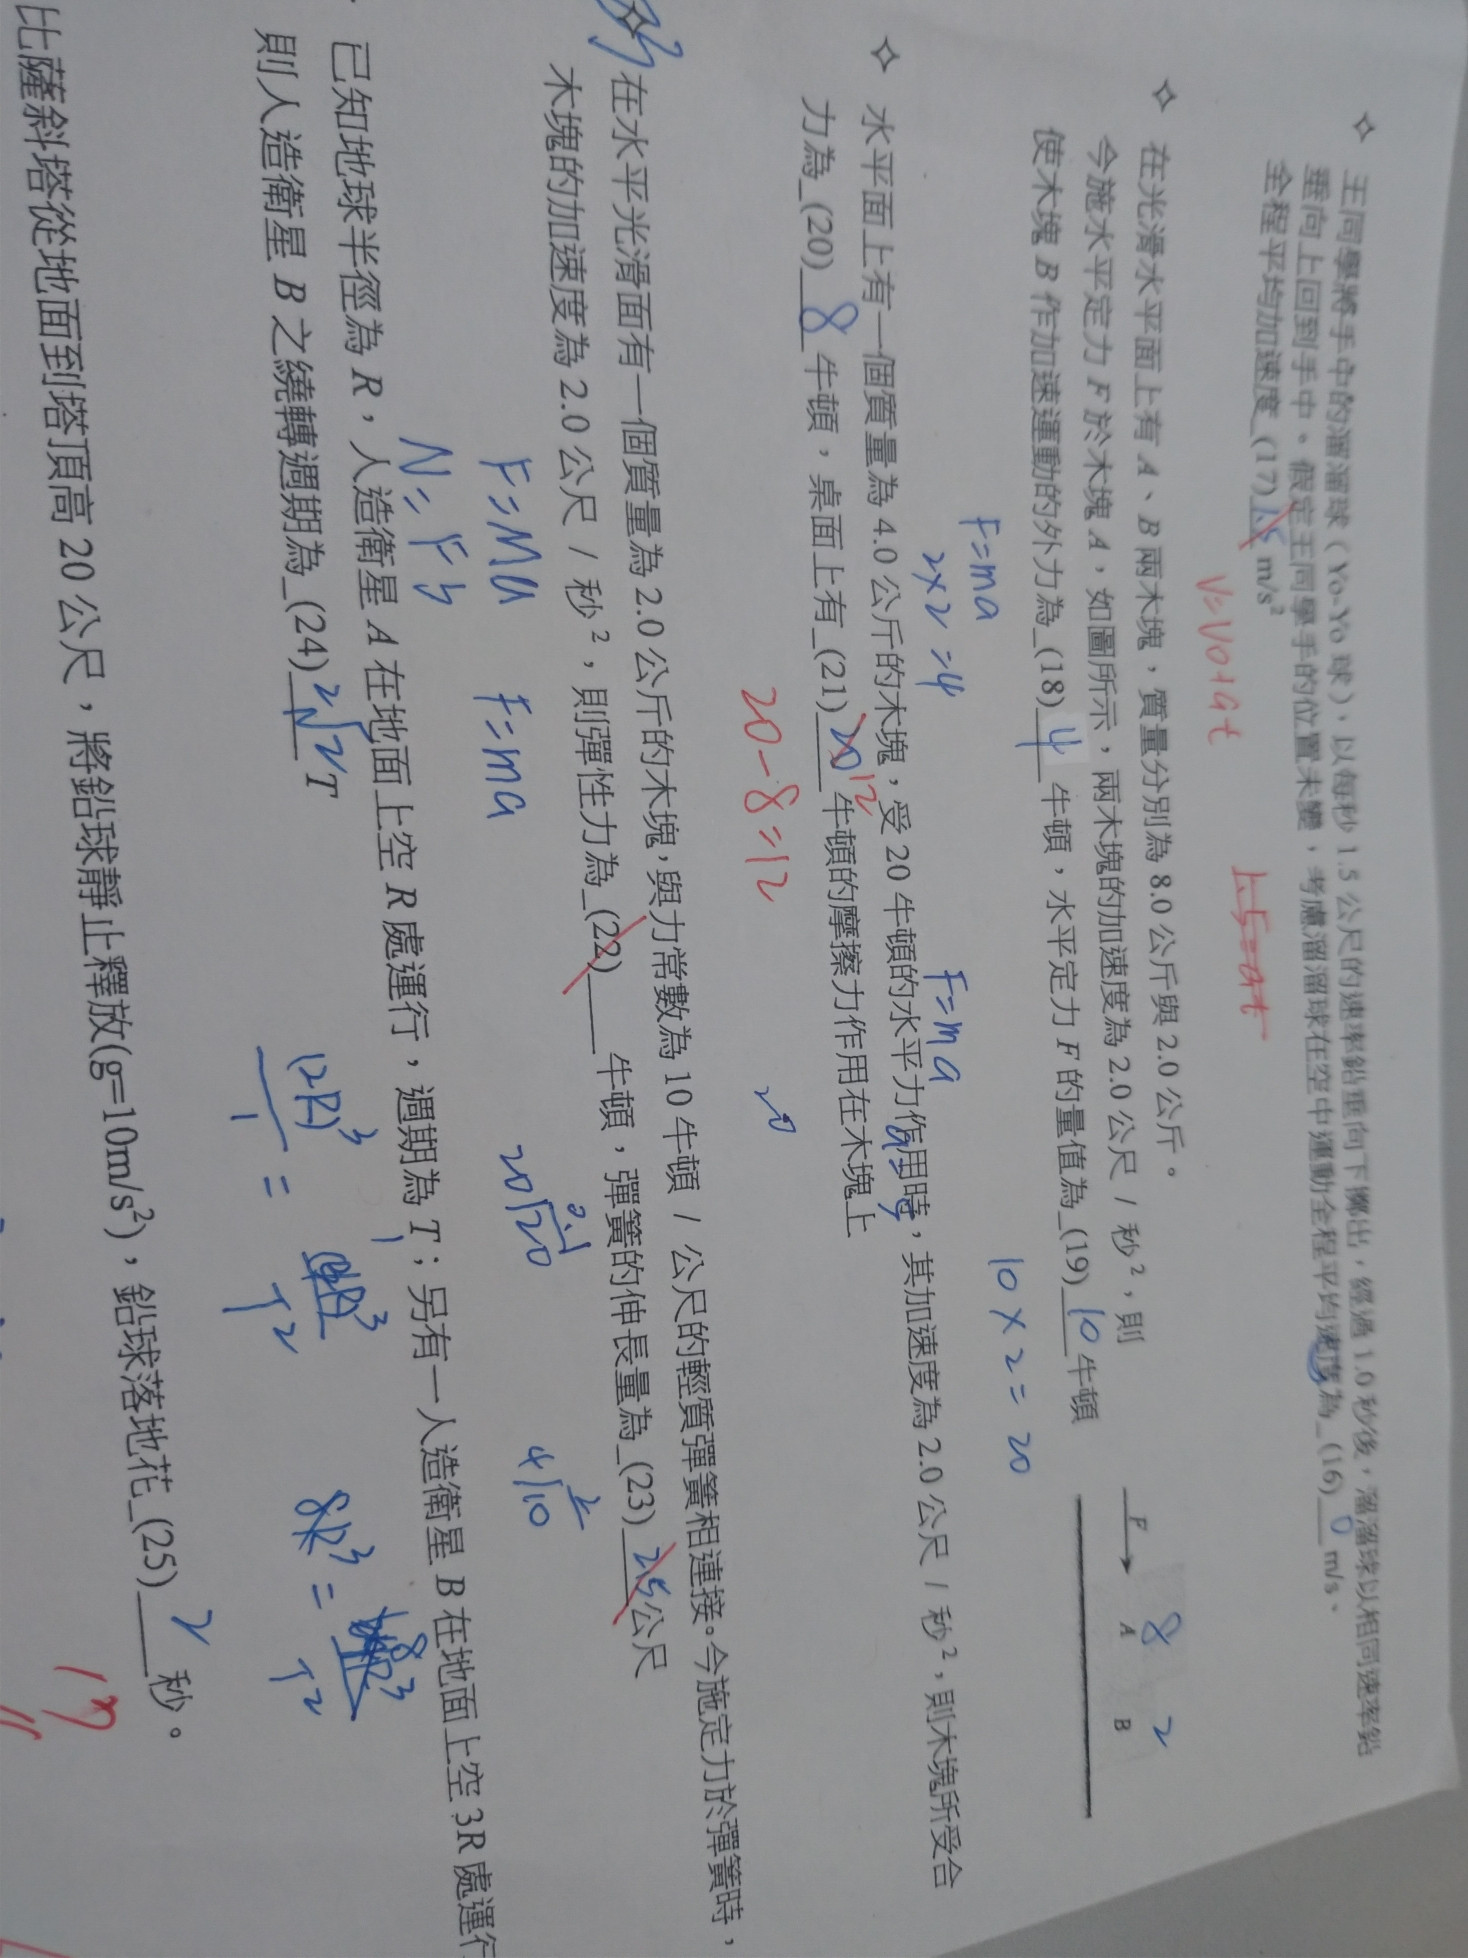 王同學將手中的溜溜球（Yo-Yo 球），以每秒 1.5 公尺的速率鉛垂向下擲出，經過 1.0 秒後，溜溜球以相同速率鉛
垂向上回到手中。假定王同學手的位置未變，考慮溜溜球在空中運動全程平均速度為_(16)__0__m/s、
全程平均加速度_(17)1.5 m/s²
V=V0+at
1.5=at
在光滑水平面上有 A、B 兩木塊，質量分別為 8.0 公斤與 2.0 公斤。
今施水平定力 F 於木塊 A，如圖所示，兩木塊的加速度為 2.0 公尺 / 秒²，則
使木塊 B 作加速運動的外力為_(18)__4__牛頓，水平定力 F 的量值為_(19)__10__牛頓
F
A
B
8 2
F=ma
2×2=4
F=ma
10×2=20
水平面上有一個質量為 4.0 公斤的木塊，受 20 牛頓的水平力作用時，其加速度為 2.0 公尺 / 秒²，則木塊所受合
力為_(20)__8__牛頓，桌面上有_(21)__20 12__牛頓的摩擦力作用在木塊上
20-8=12
20
在水平光滑面有一個質量為 2.0 公斤的木塊，與力常數為 10 牛頓 / 公尺的輕質彈簧相連接。今施定力於彈簧時，
木塊的加速度為 2.0 公尺 / 秒²，則彈性力為_(22)____牛頓，彈簧的伸長量為_(23)__2.5__公尺
F=Ma
F=ma
已知地球半徑為 R，人造衛星 A 在地面上空 R 處運行，週期為 T；另有一人造衛星 B 在地面上空 3R 處運行
則人造衛星 B 之繞轉週期為_(24)__2√2__T
比薩斜塔從地面到塔頂高 20 公尺，將鉛球靜止釋放(g=10m/s²)，鉛球落地花_(25)__2__秒。